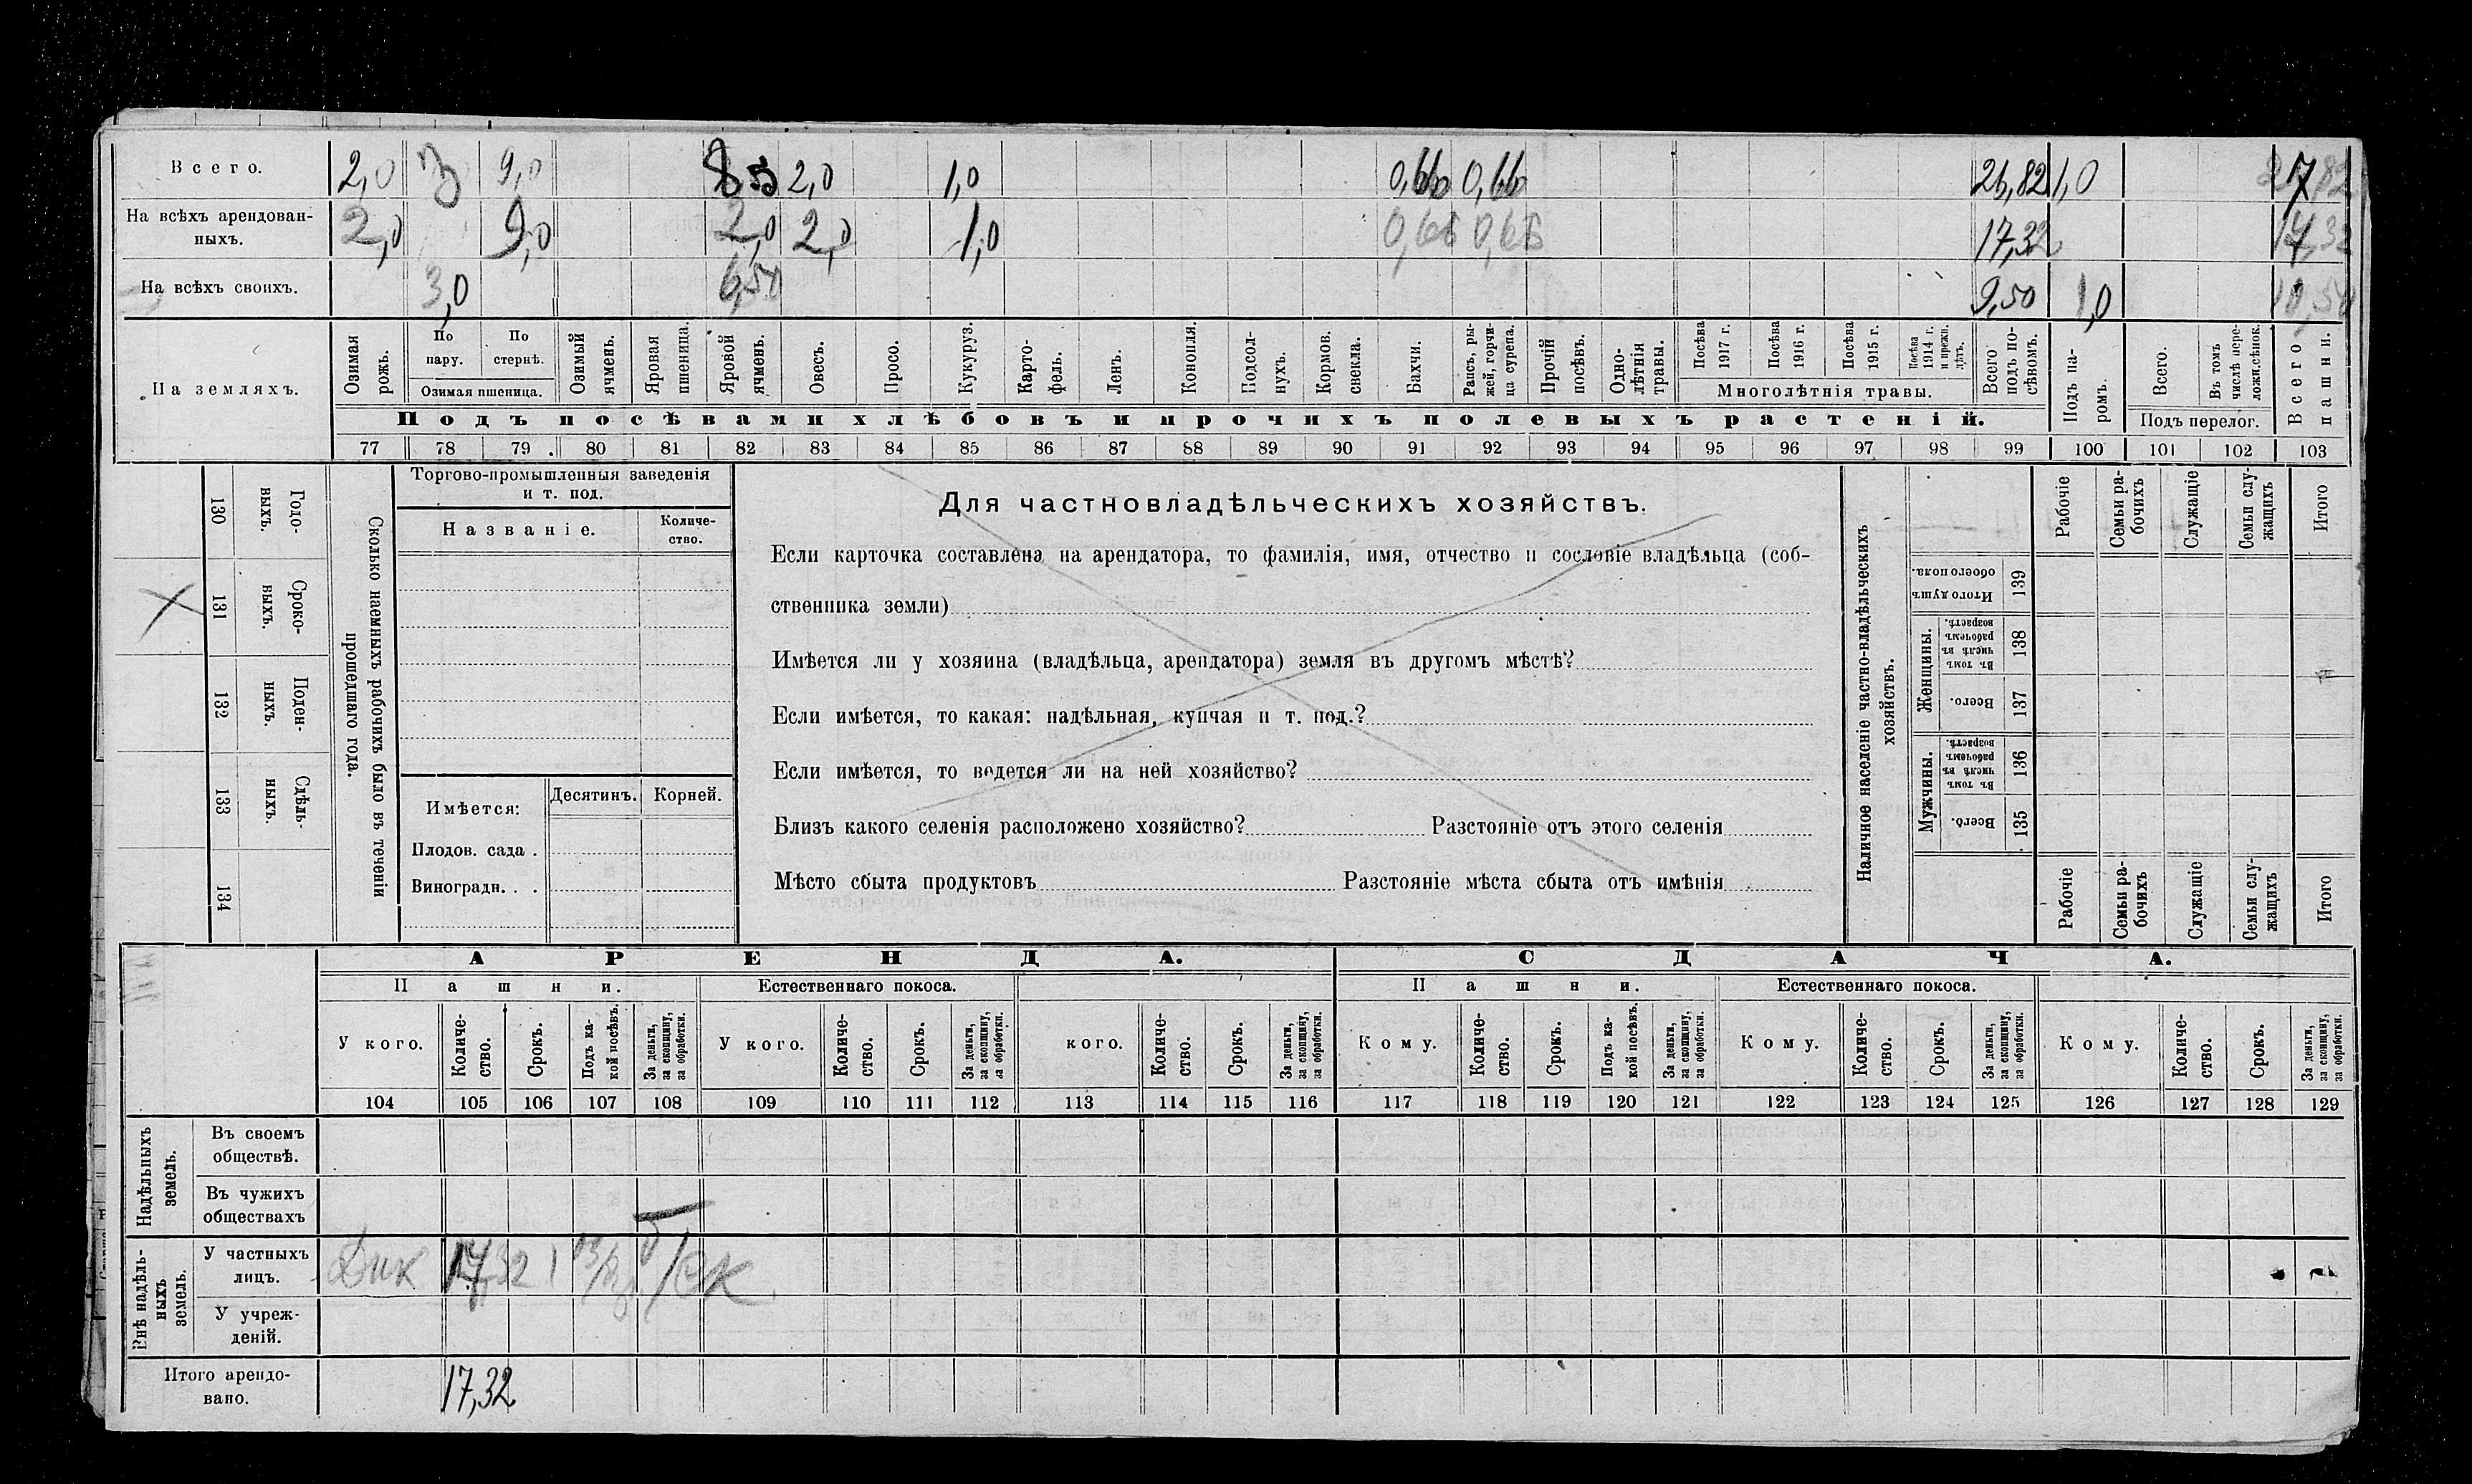 Всего. 2,0 3 9,0 8 5 2,0 1,0 0,66 0,66 26,82 1,0 27,82
На всѣхъ арендован-
ныхъ. 2,0 9,0 2,0 2,0 1,0 0,66 0,66 17,32 17,32
На всѣхъ своихъ. 3,0 6,50 9,50 1,0 10,50
На земляхъ.
Озимая рожь.
По пару.
По стернѣ.
Озимая пшеница.
Озимый ячмень.
Яровая пшеница.
Яровой ячмень.
Овесъ.
Просо.
Кукуруз.
Карто-
фель.
Ленъ.
Конопля.
Подсол-
нухъ.
Кормов.
свекла.
Бахчи.
Рапсъ, ры-
жей, горчи-
ца сурепа.
Прочій
посѣвъ.
Одно-
лѣтнія
травы.
Посѣва
1917 г.
Посѣва
1916 г.
Посѣва
1915 г.
Посѣва
1914 г.
и прежн.
лѣтъ.
Многолѣтнія травы.
Всего
подъ по-
сѣвомъ.
Подъ па-
ромъ.
Всего.
Въ томъ
числѣ пере-
ложн. сѣнок.
Подъ перелог.
Всего
пашни.
Подъ посѣвами хлѣбовъ и прочихъ полевыхъ растеній.
77 78 79 80 81 82 83 84 85 86 87 88 89 90 91 92 93 94 95 96 97 98 99 100 101 102 103
130 Годо-
выхъ.
131 Сроко-
выхъ.
132 Поден-
ныхъ.
133 Сдѣль-
ныхъ.
134
Сколько наемныхъ рабочихъ было въ теченіи
прошедшаго года.
Торгово-промышленныя заведенія
и т. под.
Названіе.
Количе-
ство.
Имѣется: Десятинъ. Корней.
Плодов. сада .
Виноградн. . .
Для частновладѣльческихъ хозяйствъ.
Если карточка составлена на арендатора, то фамилія, имя, отчество и сословіе владѣльца (соб-
ственника земли)
Имѣется ли у хозяина (владѣльца, арендатора) земля въ другомъ мѣстѣ?
Если имѣется, то какая: надѣльная, купчая и т. под.?
Если имѣется, то ведется ли на ней хозяйство?
Близъ какого селенія расположено хозяйство? Разстояніе отъ этого селенія
Мѣсто сбыта продуктовъ Разстояніе мѣста сбыта отъ имѣнія
Наличное населеніе частно-владѣльческихъ
хозяйствъ.
Рабочіе
Семьи ра-
бочихъ
Служащіе
Семьи слу-
жащихъ
Итого
Итого душъ
обоего пола. 139
Женщины.
Въ томъ
числѣ въ
рабочемъ
возрастѣ. 138
Всего. 137
Мужчины.
Въ томъ
числѣ въ
рабочемъ
возрастѣ. 136
Всего. 135
Рабочіе
Семьи ра-
бочихъ
Служащіе
Семьи слу-
жащихъ
Итого
АРЕНДА. СДАЧА.
Пашни. Естественнаго покоса. Пашни. Естественнаго покоса.
У кого.
Количе-
ство.
Срокъ.
Подъ ка-
кой посѣвъ.
За деньги,
за скопщину,
за обработки.
У кого.
Количе-
ство.
Срокъ.
За деньги,
за скопщину,
за обработки.
кого.
Количе-
ство.
Срокъ.
За деньги,
за скопщину,
за обработки.
Кому.
Количе-
ство.
Срокъ.
Подъ ка-
кой посѣвъ.
За деньги,
за скопщину,
за обработки.
Кому.
Количе-
ство.
Срокъ.
За деньги,
за скопщину,
за обработки.
Кому.
Количе-
ство.
Срокъ.
За деньги,
за скопщину,
за обработки.
104 105 106 107 108 109 110 111 112 113 114 115 116 117 118 119 120 121 122 123 124 125 126 127 128 129
Надѣльныхъ
земель.
Въ своемъ
обществѣ.
Въ чужихъ
обществахъ
Внѣ надѣль-
ныхъ
земель.
У частныхъ
лицъ. Дик 17,32 1 ск
У учреж-
деній.
Итого арендо-
вано. 17,32